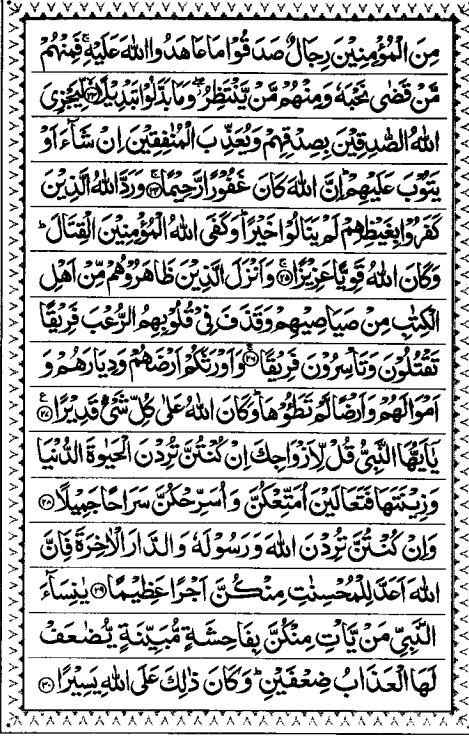 مِنَ الْمُؤْمِنِيْنَ رِجَالٌ صَدَقُوْا مَا عَاهَدُوا اللهَ عَلَيْهِ ۚ فَمِنْهُمْ
مَّنْ قَضٰى نَحْبَهٗ وَمِنْهُمْ مَّنْ يَّنْتَظِرُ ۖ وَمَا بَدَّلُوْا تَبْدِيْلًا ۙ﴿۲۳﴾ لِّيَجْزِىَ
اللهُ الصّٰدِقِيْنَ بِصِدْقِهِمْ وَيُعَذِّبَ الْمُنٰفِقِيْنَ اِنْ شَآءَ اَوْ
يَتُوْبَ عَلَيْهِمْ ؕ اِنَّ اللهَ كَانَ غَفُوْرًا رَّحِيْمًا ۚ﴿۲۴﴾ وَرَدَّ اللهُ الَّذِيْنَ
كَفَرُوْا بِغَيْظِهِمْ لَمْ يَنَالُوْا خَيْرًا ؕ وَكَفَى اللهُ الْمُؤْمِنِيْنَ الْقِتَالَ ؕ
وَكَانَ اللهُ قَوِيًّا عَزِيْزًا ۚ﴿۲۵﴾ وَاَنْزَلَ الَّذِيْنَ ظَاهَرُوْهُمْ مِّنْ اَهْلِ
الْكِتٰبِ مِنْ صَيَاصِيْهِمْ وَقَذَفَ فِىْ قُلُوْبِهِمُ الرُّعْبَ فَرِيْقًا
تَقْتُلُوْنَ وَتَاْسِرُوْنَ فَرِيْقًا ۚ﴿۲۶﴾ وَاَوْرَثَكُمْ اَرْضَهُمْ وَدِيَارَهُمْ وَ
اَمْوَالَهُمْ وَاَرْضًا لَّمْ تَطَئُوْهَا ؕ وَكَانَ اللهُ عَلٰى كُلِّ شَىْءٍ قَدِيْرًا ﴿۲۷﴾
يٰۤاَيُّهَا النَّبِىُّ قُلْ لِّاَزْوَاجِكَ اِنْ كُنْتُنَّ تُرِدْنَ الْحَيٰوةَ الدُّنْيَا
وَزِيْنَتَهَا فَتَعَالَيْنَ اُمَتِّعْكُنَّ وَاُسَرِّحْكُنَّ سَرَاحًا جَمِيْلًا ﴿۲۸﴾
وَاِنْ كُنْتُنَّ تُرِدْنَ اللهَ وَرَسُوْلَهٗ وَالدَّارَ الْاٰخِرَةَ فَاِنَّ
اللهَ اَعَدَّ لِلْمُحْسِنٰتِ مِنْكُنَّ اَجْرًا عَظِيْمًا ﴿۲۹﴾ يٰنِسَآءَ
النَّبِىِّ مَنْ يَّاْتِ مِنْكُنَّ بِفَاحِشَةٍ مُّبَيِّنَةٍ يُّضٰعَفْ
لَهَا الْعَذَابُ ضِعْفَيْنِ ؕ وَكَانَ ذٰلِكَ عَلَى اللهِ يَسِيْرًا ﴿۳۰﴾